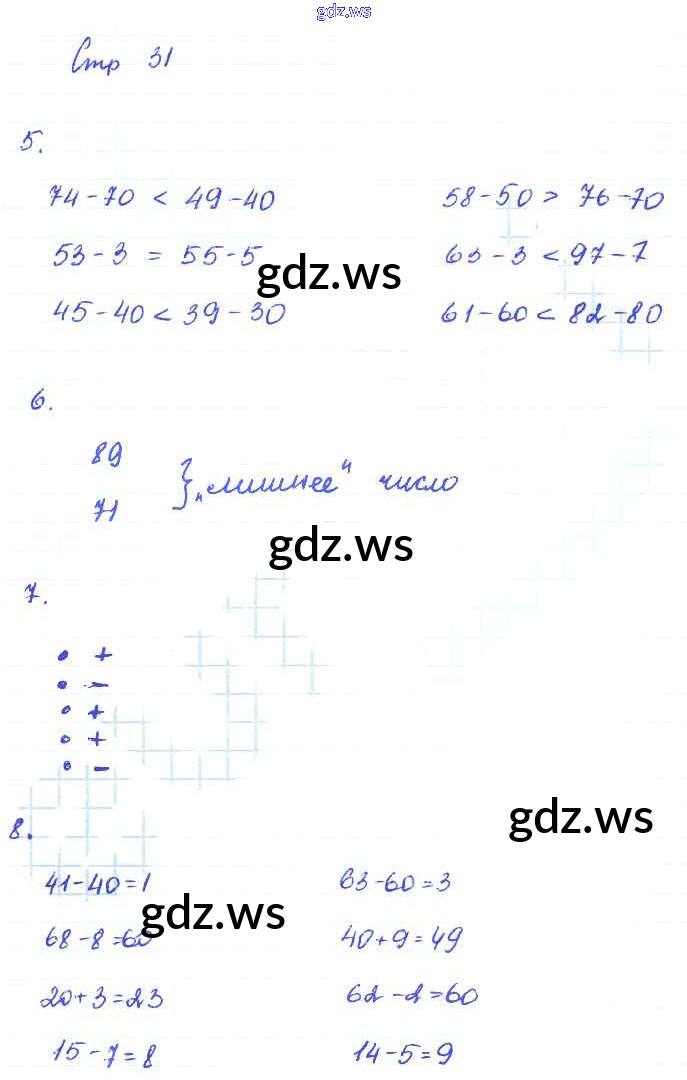 gdz.ws
Стр 31
5.
74-70 < 49-40 58-50 > 76-70
53-3 = 55-5 63-3 < 97-7
gdz.ws
45-40 < 39-30 61-60 < 82-80
6.
89
71 } „лишнее" число
gdz.ws
7.
• +
• -
• +
• +
• -
gdz.ws
8.
41-40=1 63-60=3
gdz.ws
68-8=60 40+9=49
20+3=23 62-2=60
15-7=8 14-5=9